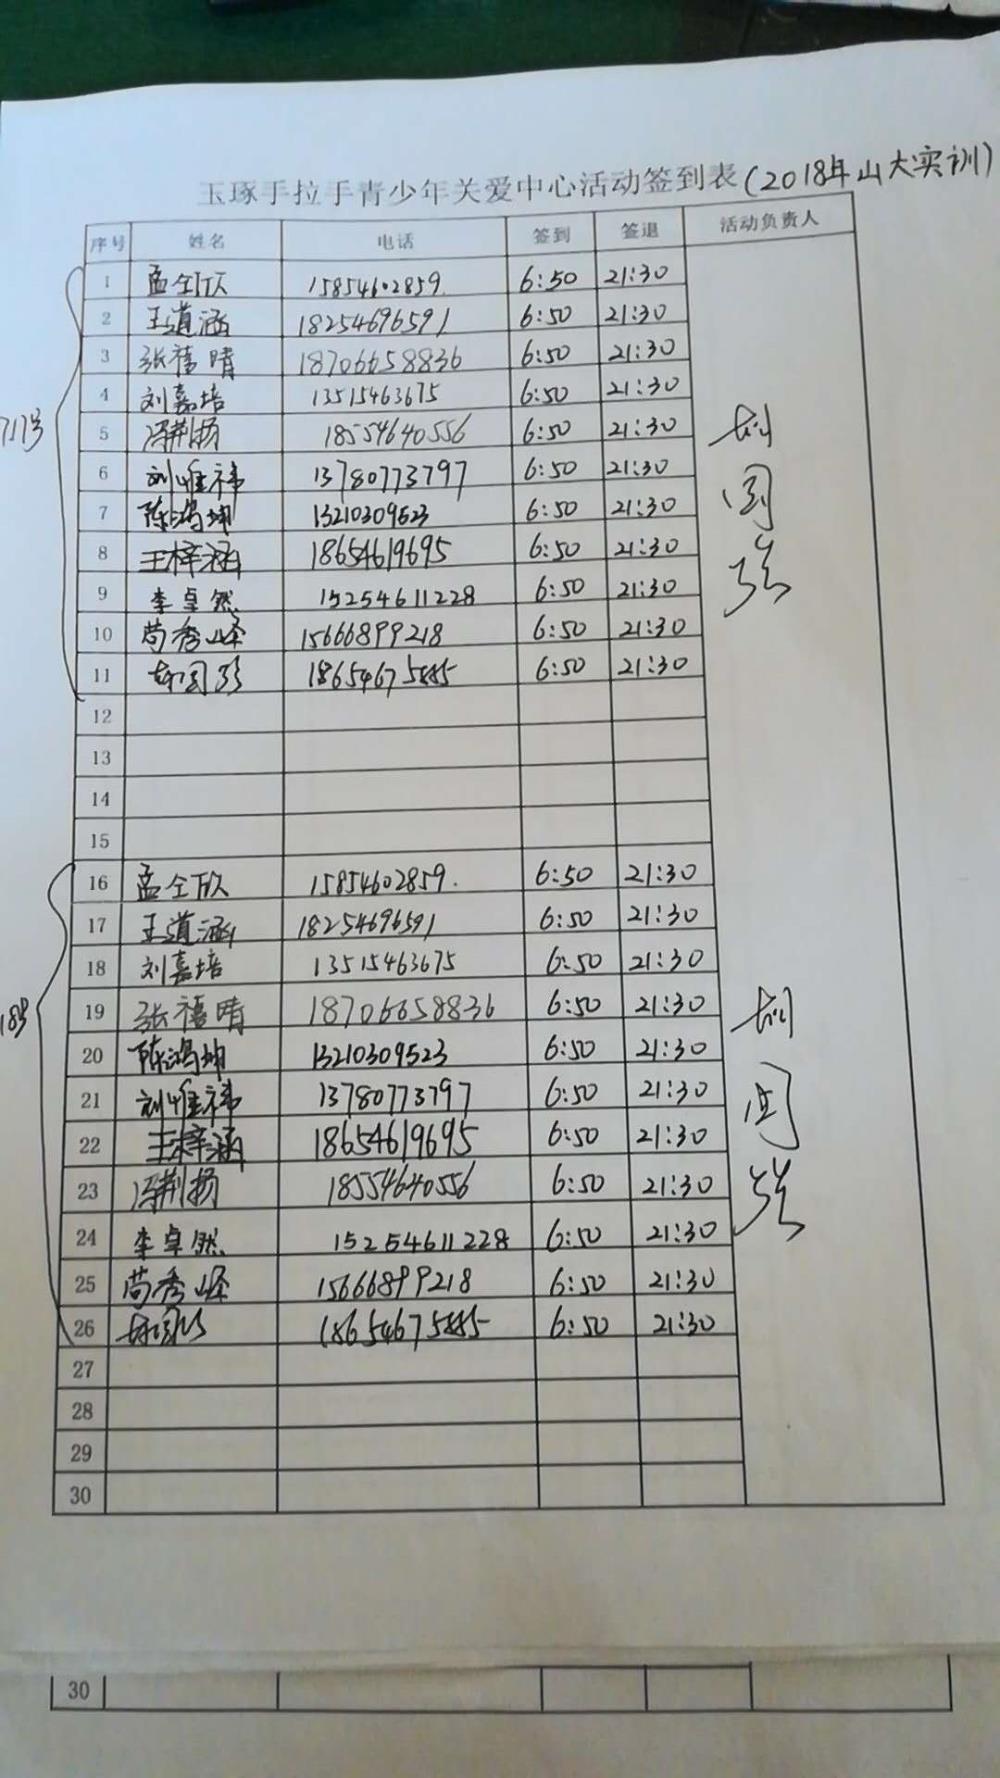 玉琢手拉手青少年关爱中心活动签到表(2018年山大实训)
序号 姓名 电话 签到 签退 活动负责人
1 孟仝欣 15854602859. 6:50 21:30
2 王道涵 18254696591 6:50 21:30
3 张禧晴 18706658836 6:50 21:30
4 刘嘉培 13515463675 6:50 21:30
5 冯荆扬 18554640556 6:50 21:30
6 刘惟祎 13780773797 6:50 21:30
7 陈鸿坤 13210309523 6:50 21:30
8 王梓涵 18654619695 6:50 21:30
9 李卓然 15254611228 6:50 21:30
10 苟秀峰 15666899218 6:50 21:30
11 18654675885 6:50 21:30
12
13
14
15
16 孟仝欣 15854602859. 6:50 21:30
17 王道涵 18254696591 6:50 21:30
18 刘嘉培 13515463675 6:50 21:30
19 张禧晴 18706658836 6:50 21:30
20 陈鸿坤 13210309523 6:50 21:30
21 刘惟祎 13780773797 6:50 21:30
22 王梓涵 18654619695 6:50 21:30
23 冯荆扬 18554640556 6:50 21:30
24 李卓然 15254611228 6:50 21:30
25 苟秀峰 15666899218 6:50 21:30
26 18654675885 6:50 21:30
27
28
29
30
30